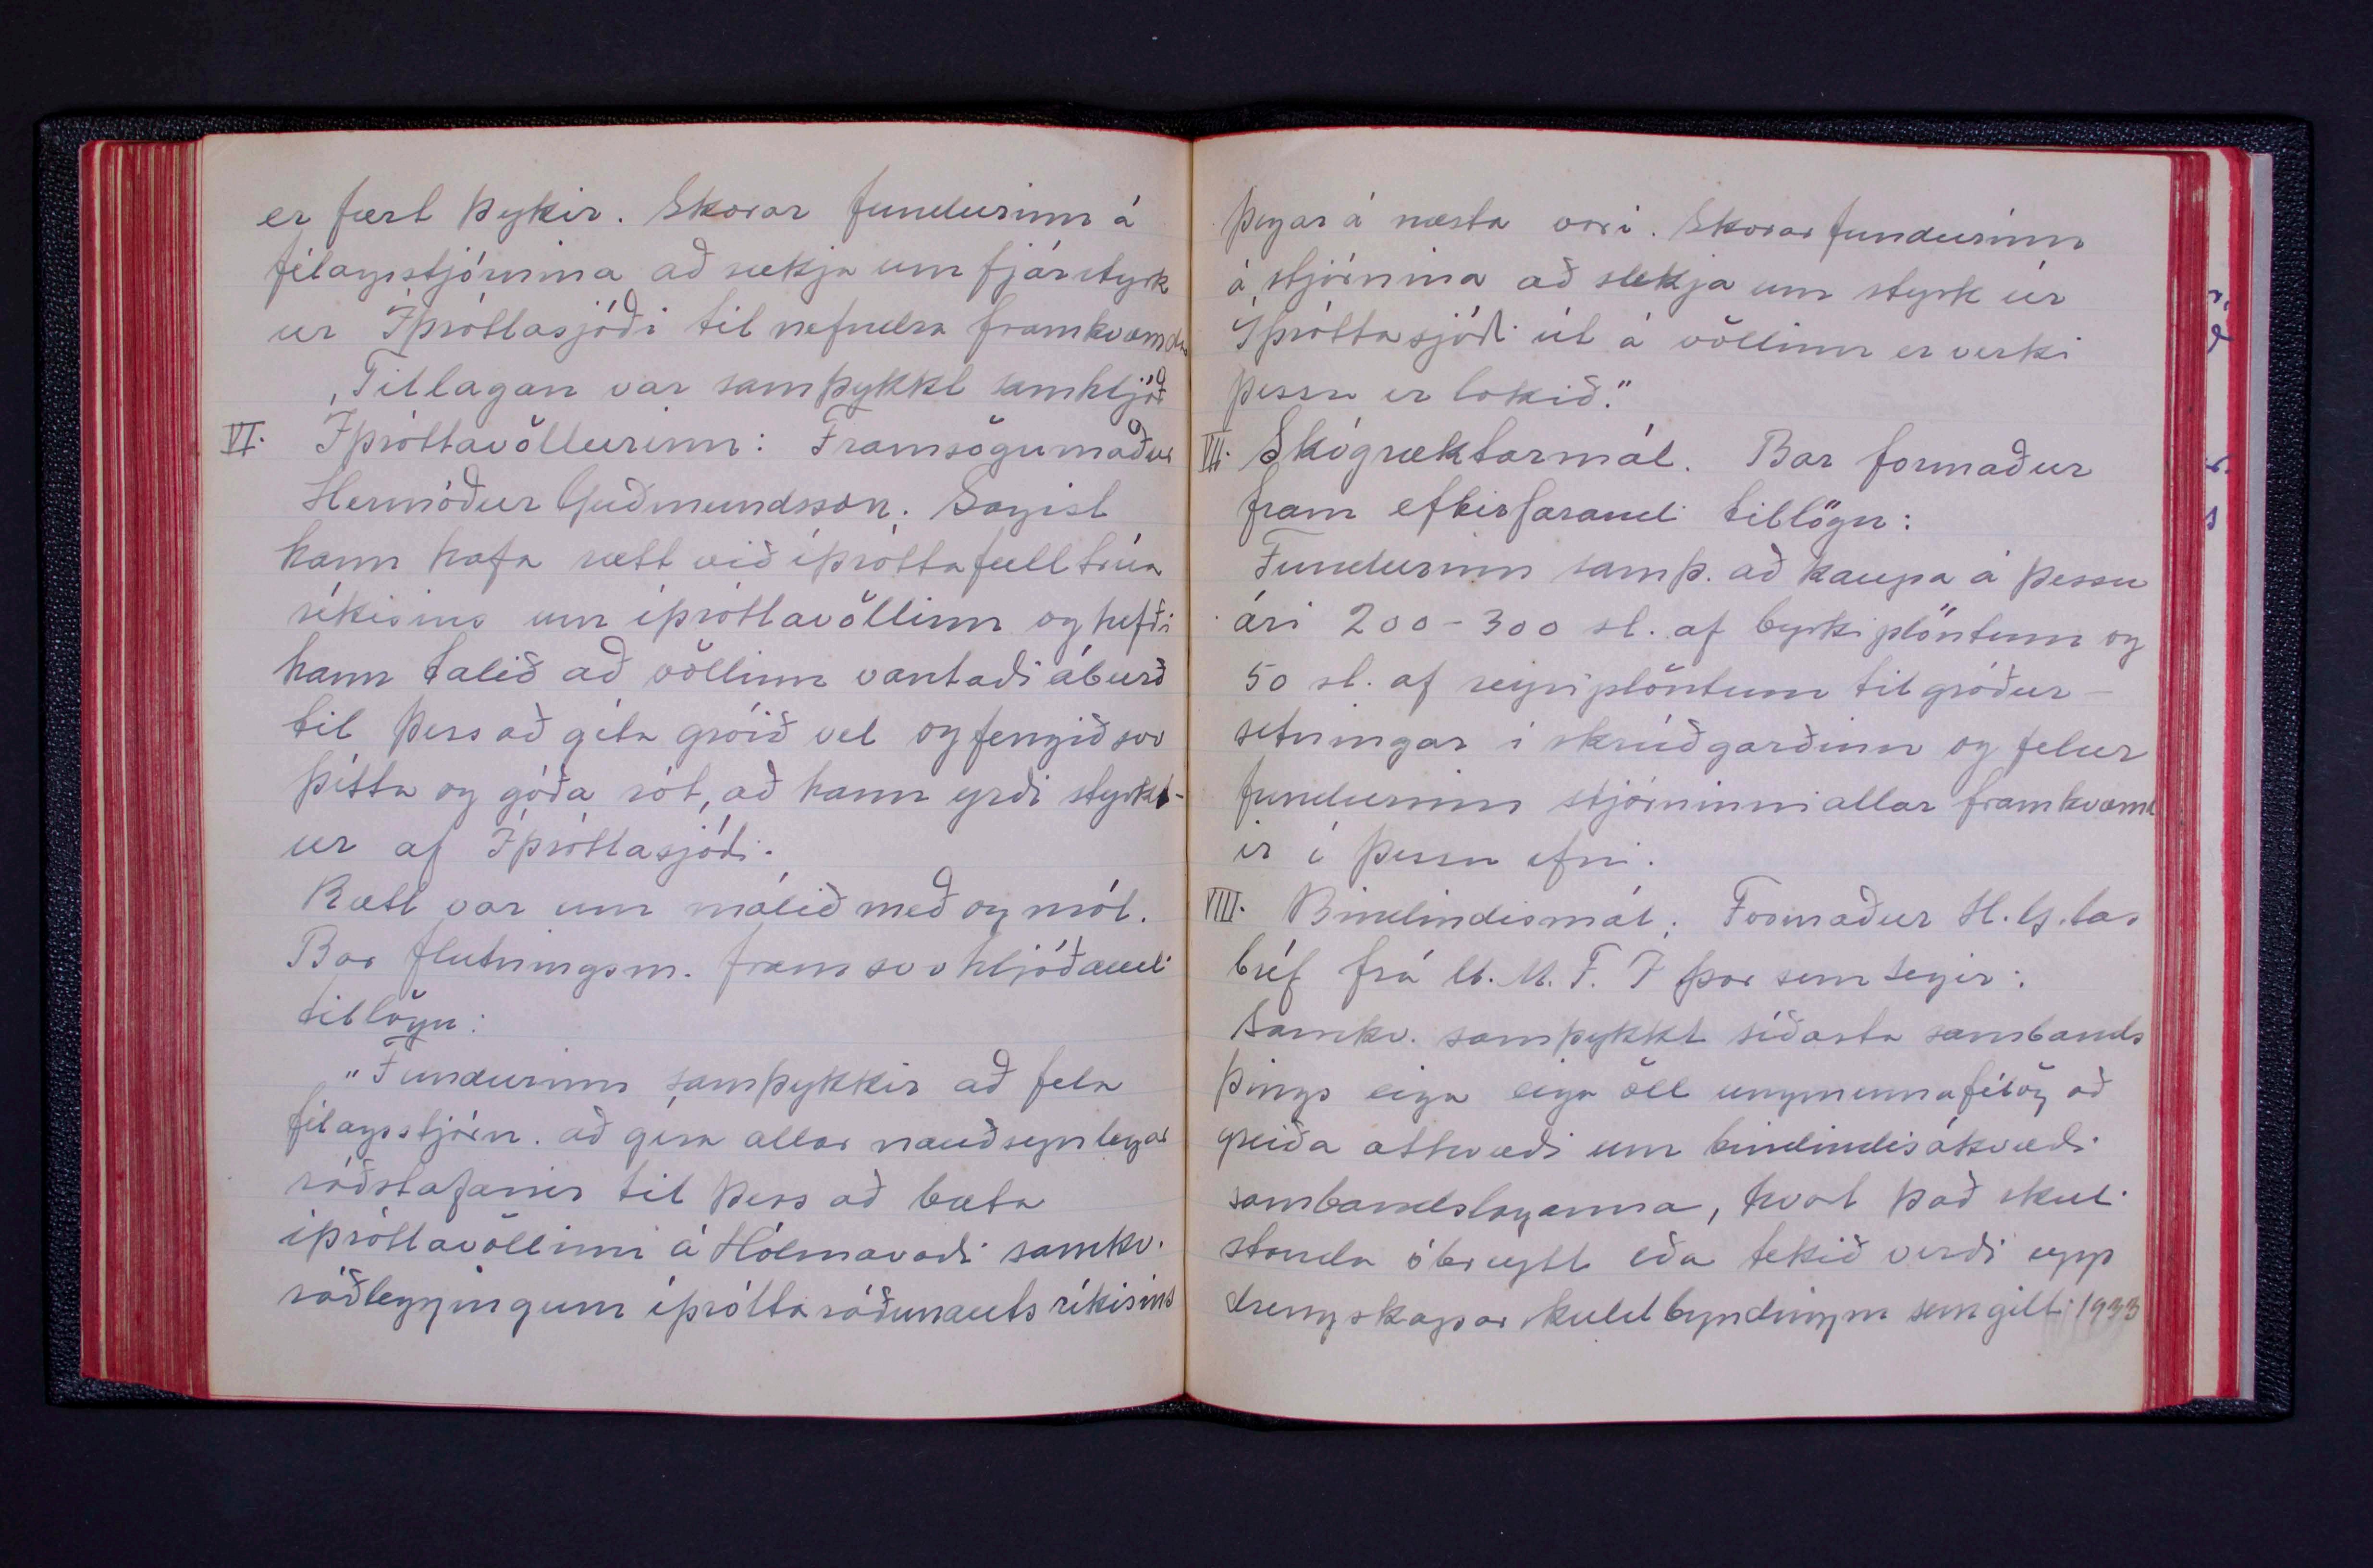 er fært þykir. Skorar fundurinn á
félagsstjórnina að sækja um fjárstyrk
úr Íþróttasjóði til nefndra framkvæmda
Tillagan var samþykkt samhljóð
VI. Íþróttavöllurinn: Framsögumaður
Hermóður Guðmundsson. Sagist
hann hafa rætt við íþróttafulltrúa
ríkisins um íþróttavöllinn og hefði
hann talið að völlinn vantaði áburð
til þess að géta gróið vel og fengið svo
þétta og góða rót, að hann yrði styrkt-
ur af Íþróttasjóði.
Rætt var um málið með og mót.
Bar flutningsm. fram svo hljóðandi
tillögu:
"Fundurinn samþykkir að fela
félagsstjórn. að gera allar nauðsynlegar
ráðstafanir til þess að bæta
íþróttavöllinn á Hólmavaði samkv.
ráðleggingum íþróttaráðunauts ríkisins
þegar á næsta vori. Skorar fundurinn
á stjórnina að sækja um styrk úr
Íþróttasjóði út á völlinn er verki
þessu er lokið."
VII. Skógræktarmál. Bar formaður
fram eftirfarandi tillögu:
Fundurinn samþ. að kaupa á þessu
ári 200-300 st. af byrkiplöntum og
50 st. af reyniplöntum til gróður-
setningar í skrúðgarðinn og felur
fundurinn stjórninni allar framkvæmd
ir í þessu efni.
VIII. Bindindismál. Formaður H.G. las
bréf frá U.M.F.Í þar sem segir:
Samkv. samþykkt síðasta sambands
þings eiga eiga öll ungmennafélög að
greiða atkvæði um bindindisákvæði
sambandslaganna, hvort það skuli
standa óbreytt eða tekið verði upp
drengskapar skuldbyndingu sem gilti 1933